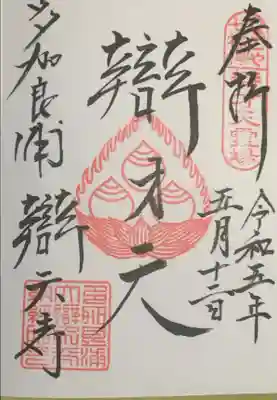 奉拝
令和五年
五月十三日
辯才天
多加良浦
辯天寺